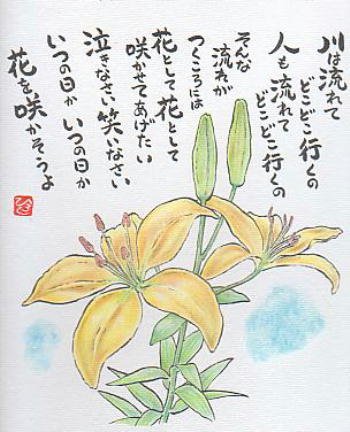 川は流れて
どこどこ行くの
人も流れて
どこどこ行くの
そんな
流れが
つくころには
花として花として
咲かせてあげたい
泣きなさい笑いなさい
いつの日か いつの日か
花を咲かそうよ